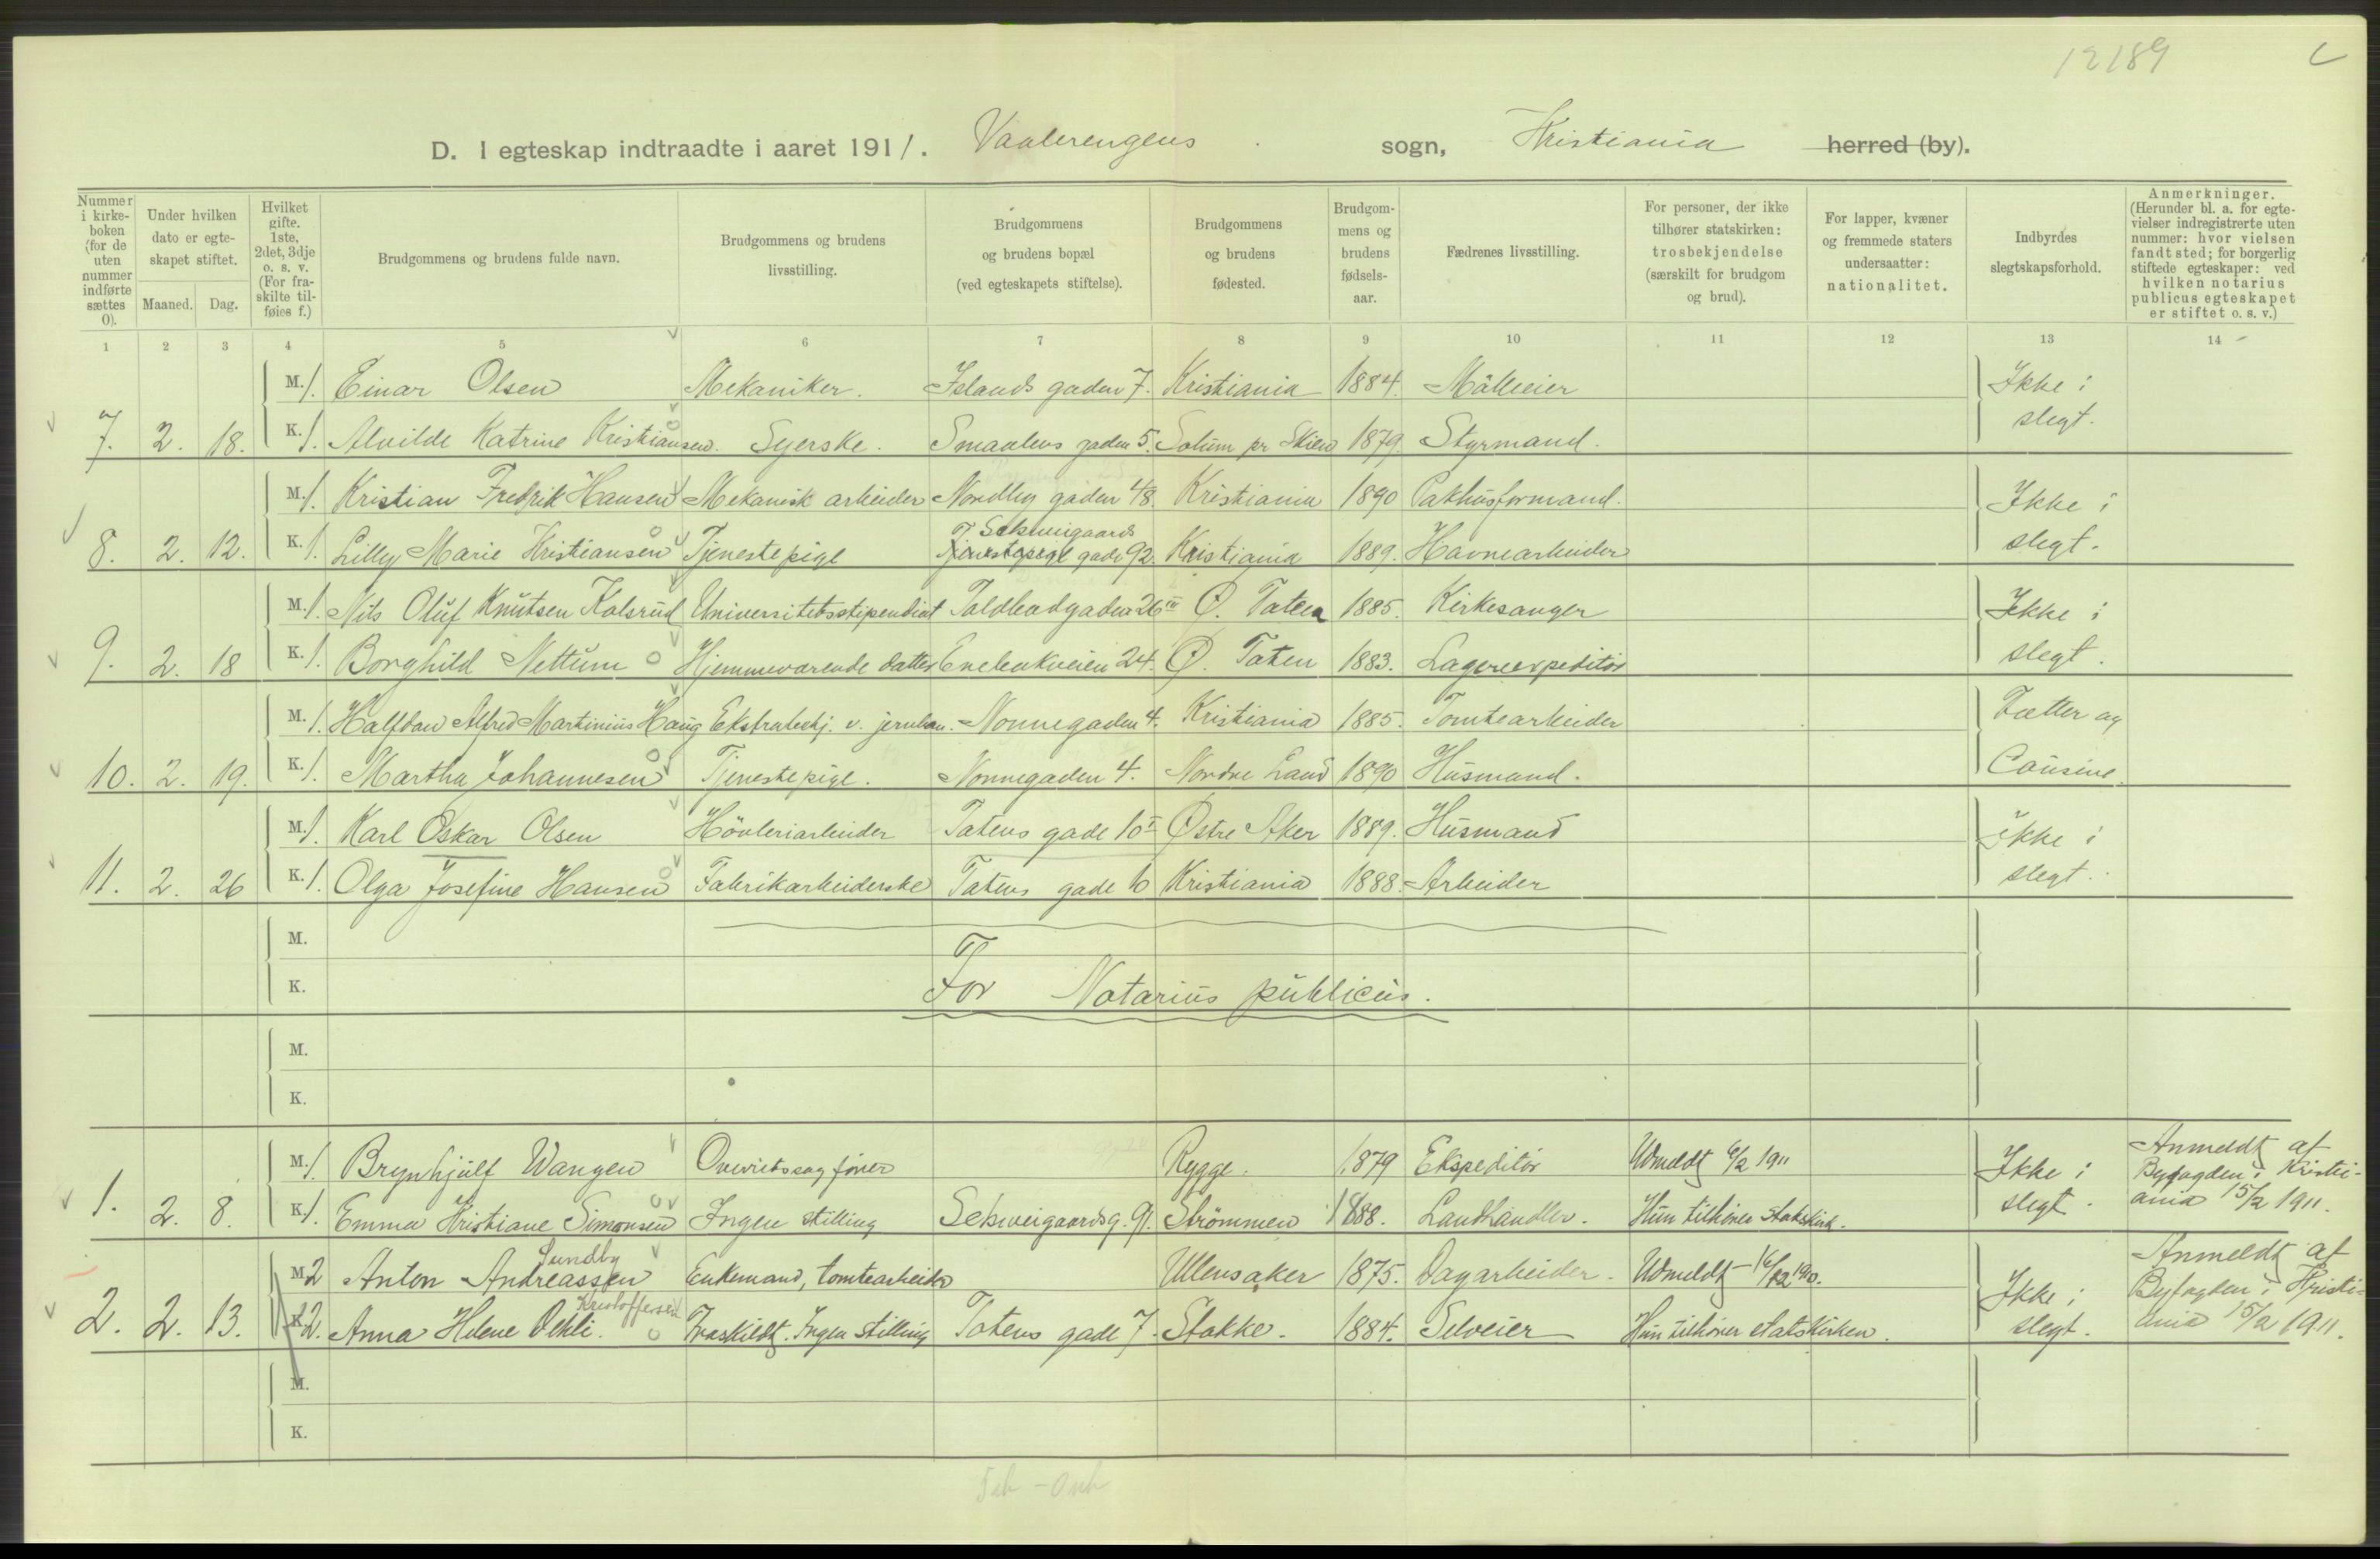 12189
D. I egteskap indtraadte i aaret 1911. Vaalerengens sogn, Kristiania herred (by).
Nummer i kirke-boken (for de uten nummer indførte sættes 0).
Under hvilken dato er egte-skapet stiftet.
Maaned. Dag.
Hvilket gifte. 1ste, 2det, 3dje o. s. v. (For fra-skilte til-føies f.)
Brudgommens og brudens fulde navn.
Brudgommens og brudens livsstilling.
Brudgommens og brudens bopæl (ved egteskapets stiftelse).
Brudgommens og brudens fødested.
Brudgom-mens og brudens fødsels-aar.
Fædrenes livsstilling.
For personer, der ikke tilhører statskirken: trosbekjendelse (særskilt for brudgom og brud).
For lapper, kvæner og fremmede staters undersaatter: nationalitet.
Indbyrdes slegtskapsforhold.
Anmerkninger. (Herunder bl. a. for egte-vielser indregistrerte uten nummer: hvor vielsen fandt sted; for borgerlig stiftede egteskaper: ved hvilken notarius publicus egteskapet er stiftet o. s. v.)
1 2 3 4 5 6 7 8 9 10 11 12 13 14
M. 1. Einar Olsen Mekaniker. Islands gaden 7. Kristiania 1884. Ikke i
7. 2. 18. K. 1. Alvilde Katrine Kristiansen. Syerske. Smaalens gaden 5. Solum pr Skien 1879. Styrmand. slegt.
M. 1. Kristian Fredrik Hansen Mekanisk arbeider Nordby gaden 48. Kristiania 1890 Pakhusformand. Ikke i
Schweigaards
8. 2. 12. K. 1. Lilly Marie Kristiansen Tjenestepige Tjenestepige gade 92. Kristiania 1889. Havnearbeider slegt.
M. 1. Nils Oluf Knutsen Kolsrud Universitetsstipendiat Toldbodgaden 26 III Ø. Toten 1885. Kirkesanger Ikke i
9. 2. 18 K. 1. Borghild Nettum Hjemmeværende datter Enebakveien 24. Ø. Toten 1883. Lagerexpeditør slegt.
M. 1. Halfdan Alfred Martinius Haug Ekstrabetj. v. jernban. Nonnegaden 4. Kristiania 1885. Tomtearbeider Fætter og
10. 2. 19. K. 1. Martha Johannesen Tjenestepige. Nonnegaden 4. Nordre Land 1890 Husmand. Cousine.
M. 1. Karl Oskar Olsen Høvleriarbeider Totens gade 10 I Østre Aker 1889. Husmand ikke i
11. 2. 26 K. 1. Olga Josefine Hansen Fabrikarbeiderske Totens gade 10 Kristiania 1888. Arbeider slegt.
M.
K. For Notarius publicus.
M.
K.
M. 1. Brynhjulf Wangen Overretssagfører Rygge. 1879 Ekspeditør Udmeldt 6/2 1911 Ikke i Anmeldt af Byfogden i Kristi-
1. 2. 8. K. 1. Emma Kristiane Simonsen Ingen stilling Schweigaardsg. 91. Strømmen 1888. Landhandler. Hun tilhører statskirk. slegt. ania 15/2 1911.
Sundby
M. 2 Anton Andreassen Enkemand, tomtearbeider Ullensaker 1875. Dagarbeider. Udmeldt 16/12 1910. Ikke i Anmeldt af Byfogden i Kristi-
Kristoffersen
2. 2. 13. K. 2. Anna Helene Oehli. Fraskildt. Ingen stilling Totens gade 7. Stokke. 1884. Selveier Hun tilhører statskirken. slegt. ania 15/2 1911.
M.
K.